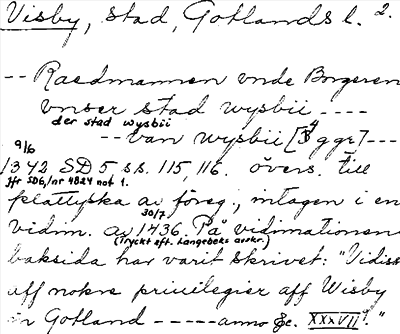 Visby, stad, Gotlands l. 2.
-- Raedmannen vnde Borgeren
vnser stad wysbii ----
der stad wysbii
-- van wysbii [3 ggr] ---
9/6
1342 SD 5 s.s. 115, 116. övers. till
jfr SD6, nr 4824 not 1.
plattyska av föreg., intagen i en
30/7
vidim. av 1436. På vidimationens
(Tryckt eft. Langebeks avskr.)
baksida har varit skrivet: "Vidiss
aff nokre priuilegier aff Wisby
in Gotland ----- anno &c. XXXVII°."